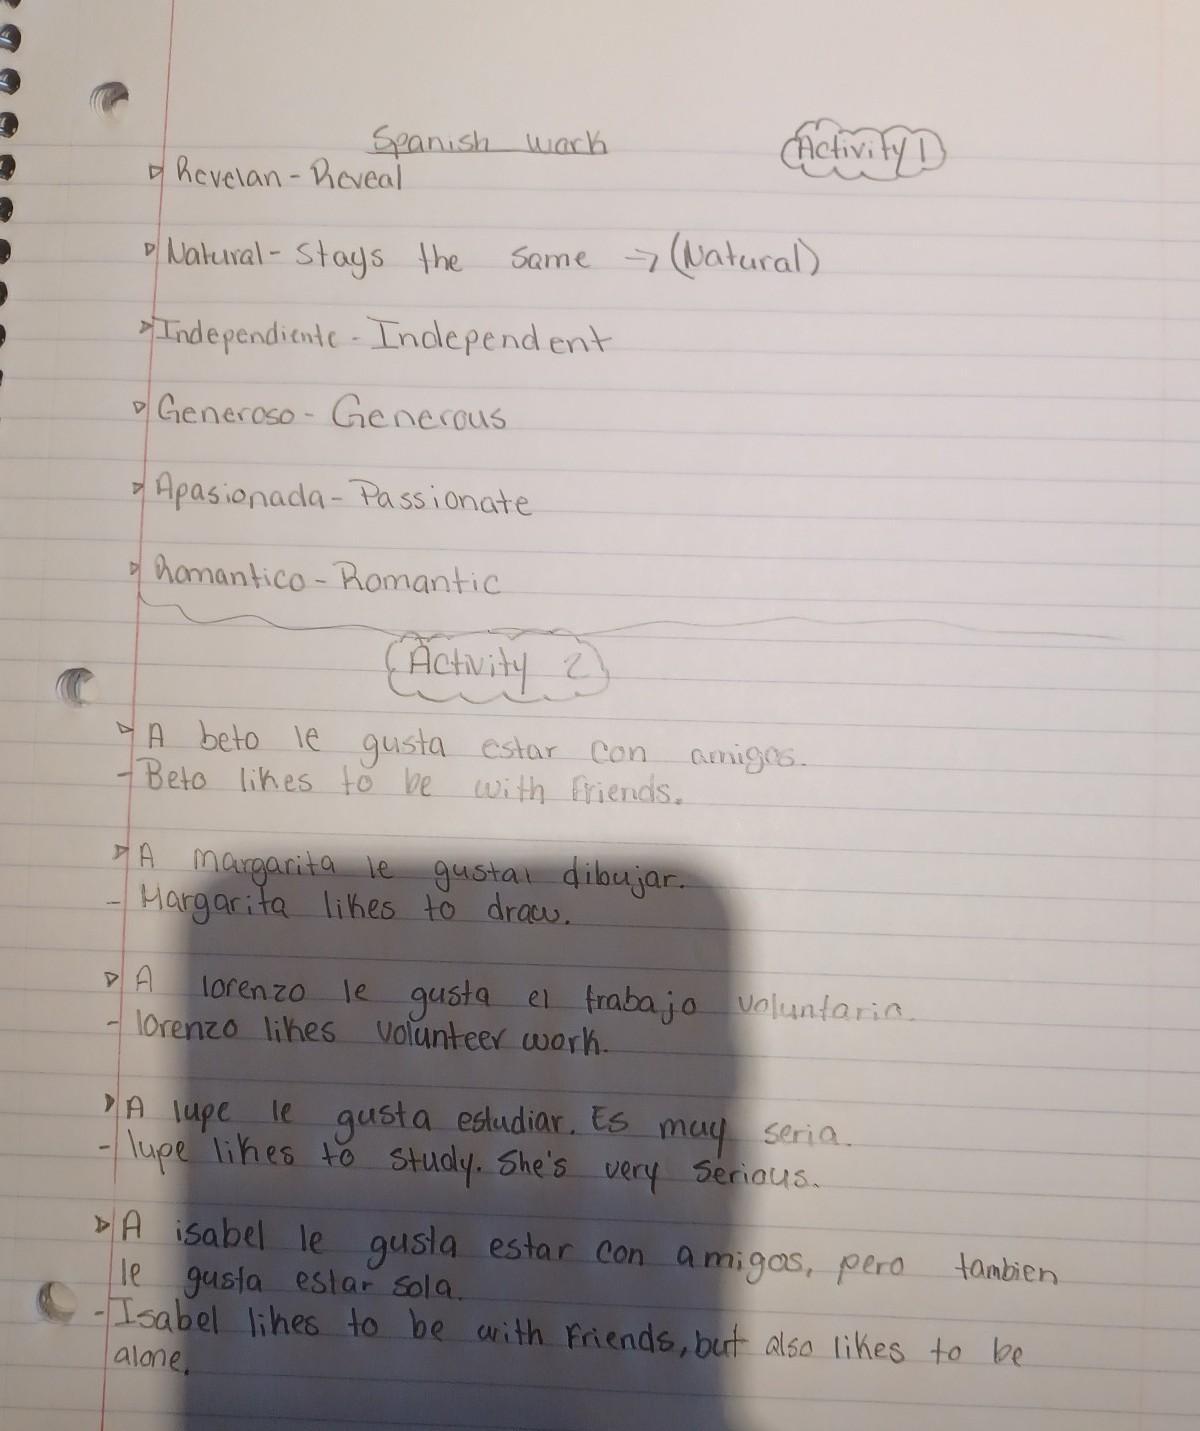 Spanish work
Activity 1
Revelan - Reveal
Natural - Stays the same → (Natural)
Independiente - Independent
Generoso - Generous
Apasionada - Passionate
Romantico - Romantic
Activity 2
A beto le gusta estar con amigos.
- Beto likes to be with friends.
A margarita le gusta dibujar.
- Margarita likes to draw.
A lorenzo le gusta el trabajo voluntario.
- lorenzo likes volunteer work.
A lupe le gusta estudiar. Es muy seria.
- lupe likes to study. She's very serious.
A isabel le gusta estar con amigos, pero tambien
le gusta estar sola.
- Isabel likes to be with friends, but also likes to be
alone.